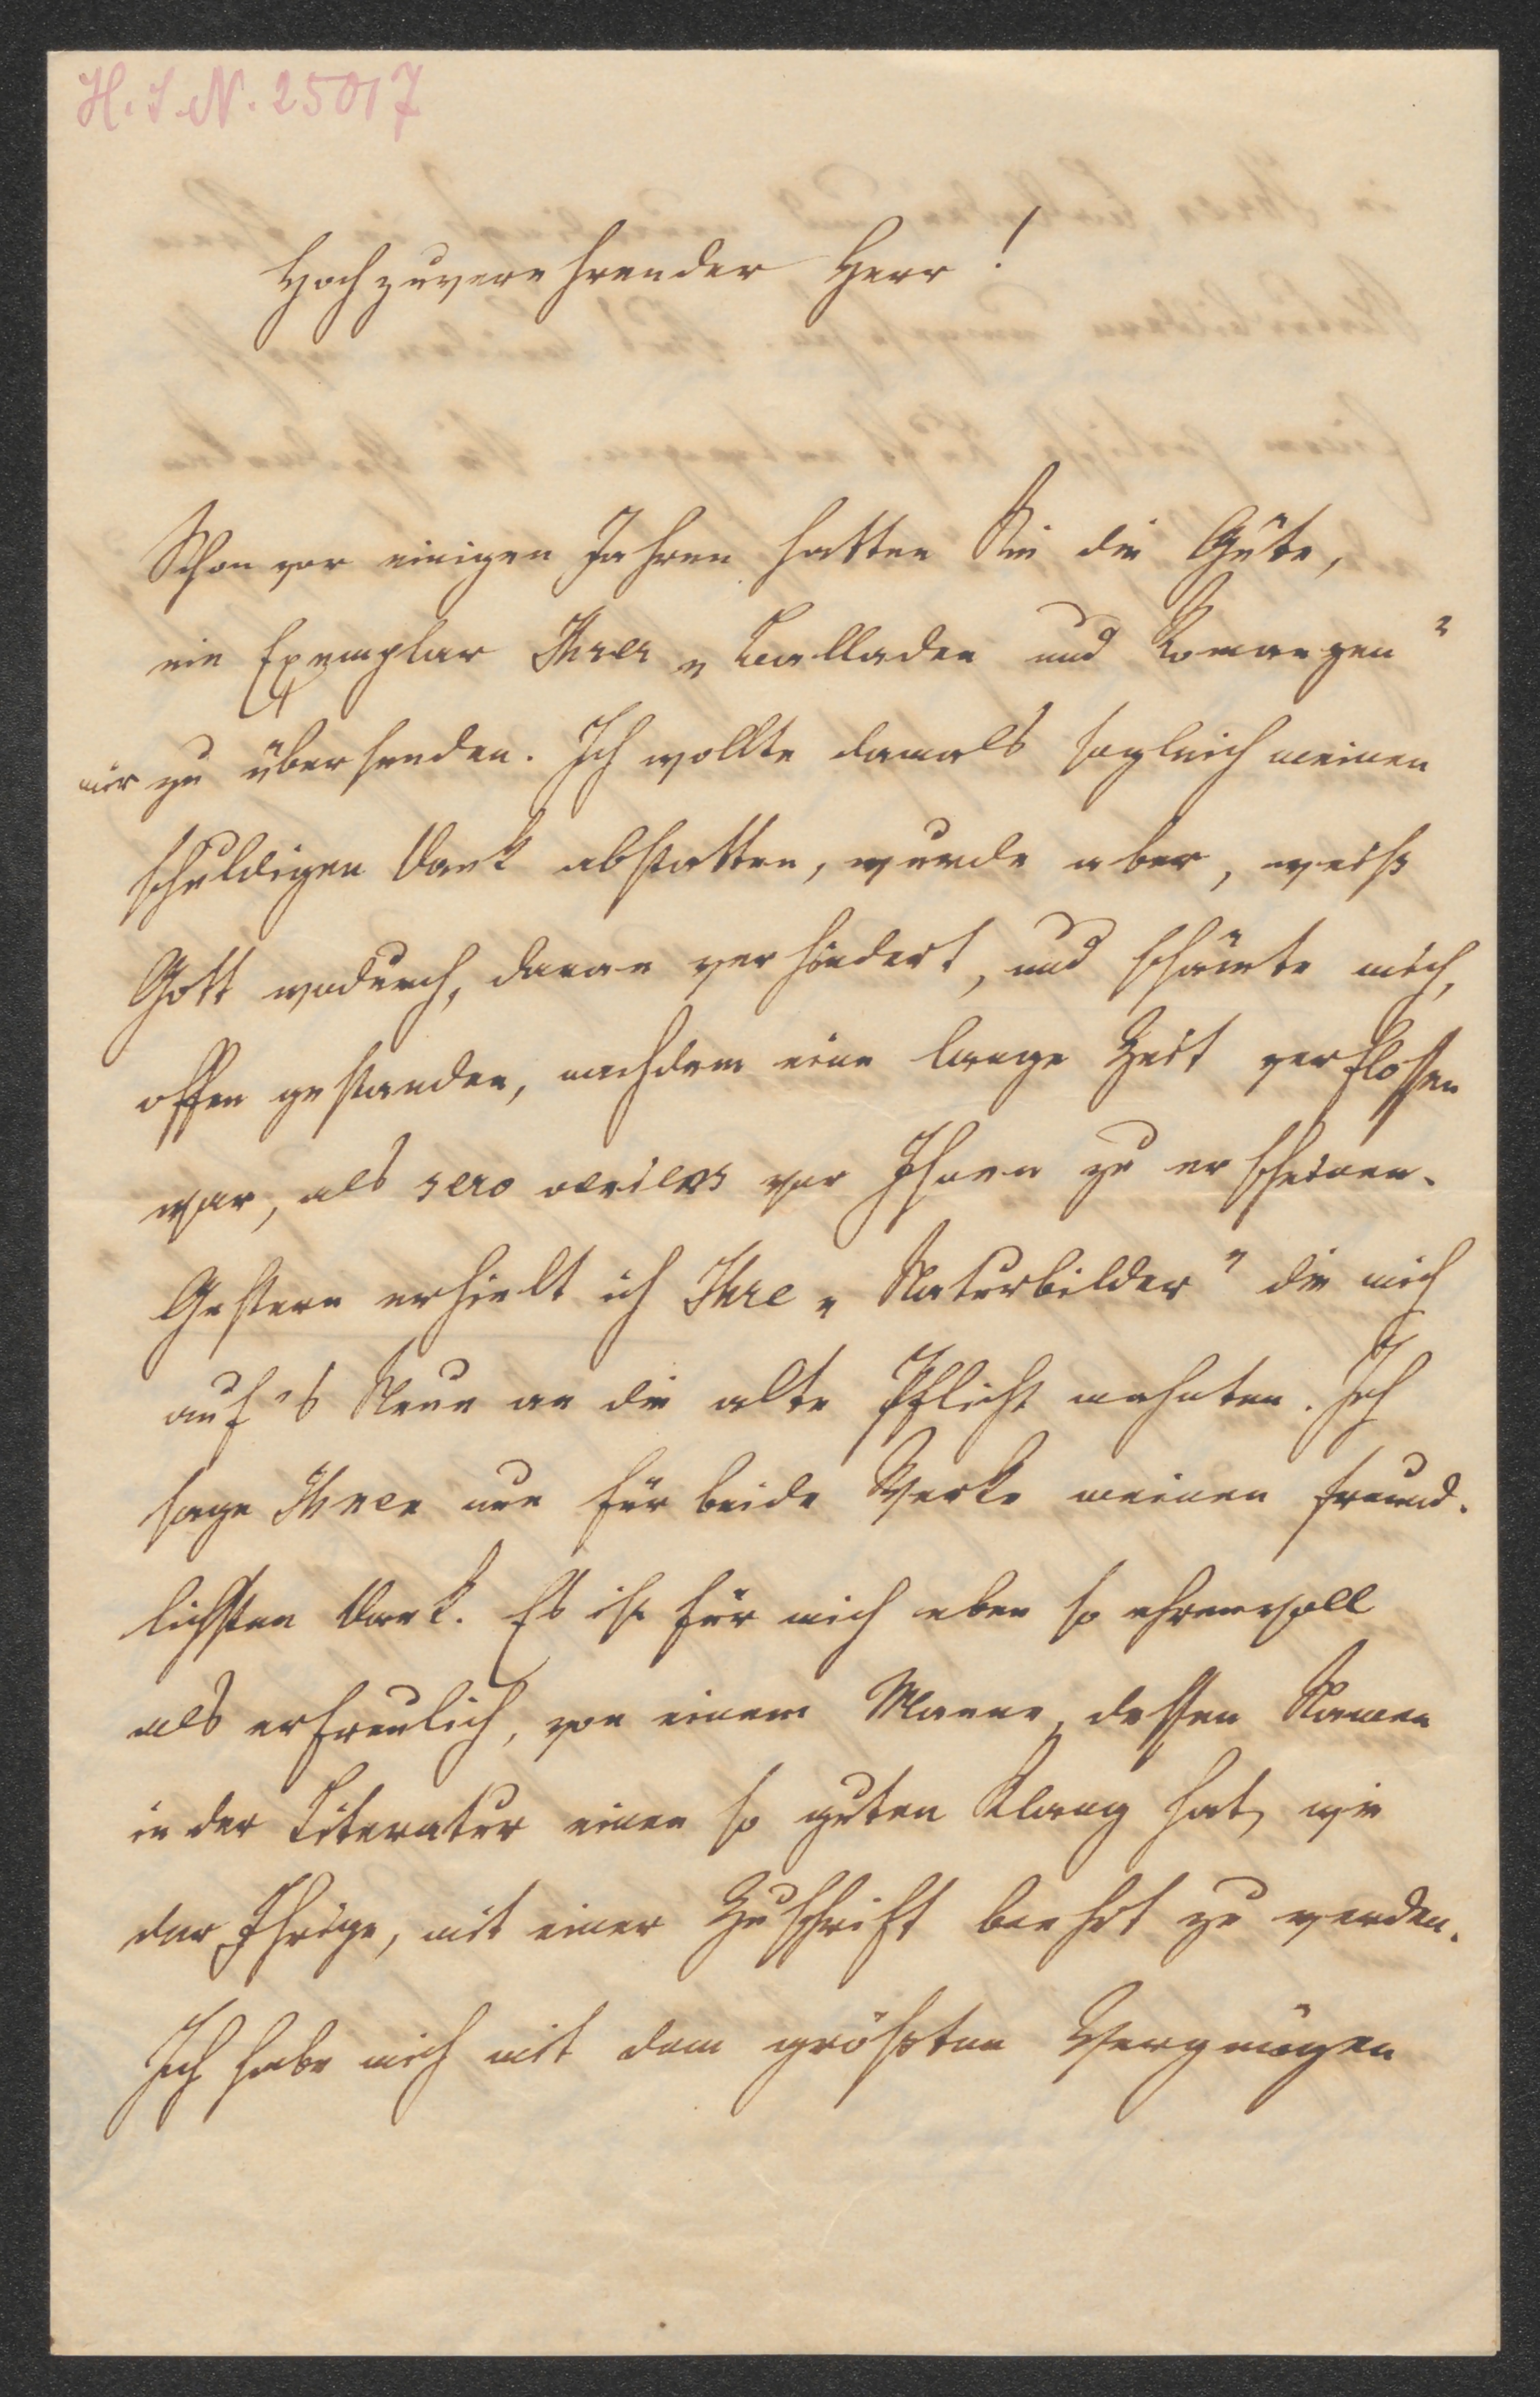 H. I. N. 25017
Hochzuverehrender Herr!
Schon vor einigen Jahren hatten Sie die Güte,
ein Exemplar Ihrer „Balladen und Romanzen"
mir zu übersenden. Ich wollte damals sogleich meinen
schuldigen Dank abstatten, wurde aber, weiß
Gott wodurch, daran verhindert, und schämte mich,
offen gestanden, nachdem eine lange Zeit verflossen
war, als sero veniens vor Ihnen zu erscheinen.
Gestern erhielt ich Ihre „Naturbilder" die mich
auf's Neue an die alte Pflicht mahnten. Ich
sage Ihnen nun für beide Werke meinen freund-
lichsten Dank. Es ist für mich eben so ehrenvoll
als erfreulich, von einem Manne, dessen Namen
in der Literatur einen so guten Klang hat, wie
der Ihrige, mit einer Zuschrift beehrt zu werden.
Ich habe mich mit dem größten Vergnügen